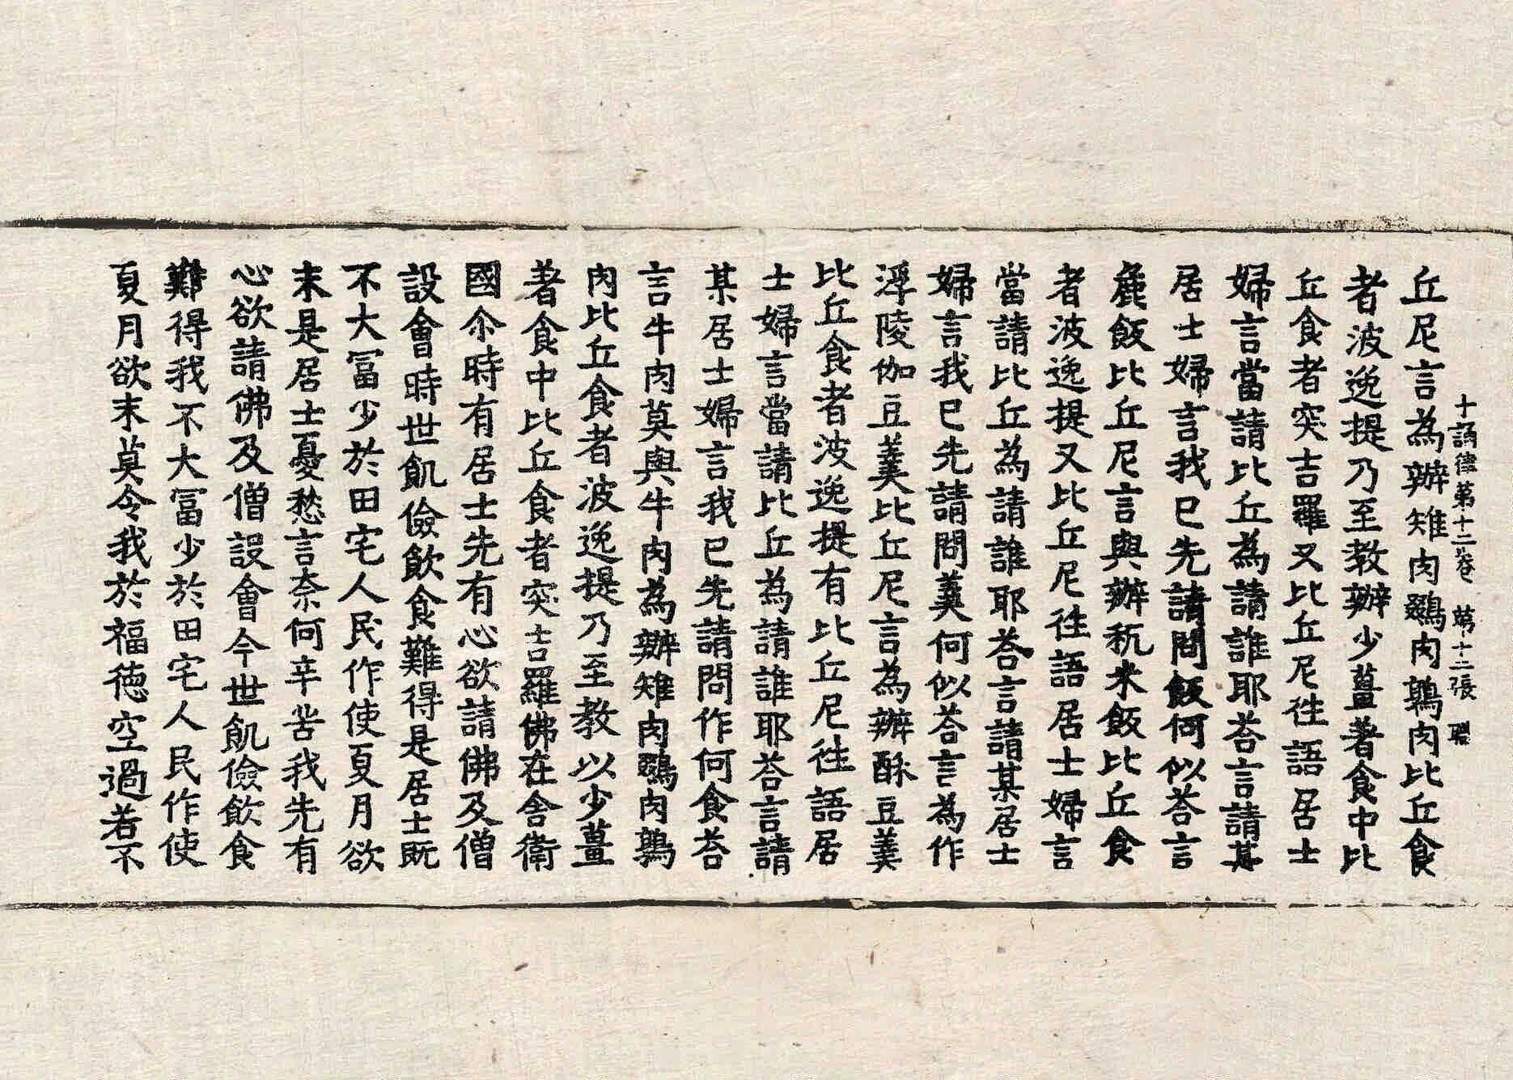 十誦律第十二卷 第十二張
丘尼言為辦雉肉鷃肉鶉肉比丘食
者波逸提乃至教辦少薑著食中比
丘食者突吉羅又比丘尼往語居士
婦言當請比丘為請誰耶荅言請某
居士婦言我已先請問飯何似荅言
麁飯比丘尼言與辦秔米飯比丘食
者波逸提又比丘尼往語居士婦言
當請比丘為請誰耶荅言請某居士
婦言我已先請問羹何似荅言為作
浮陵伽豆羹比丘尼言為辦酥豆羹
比丘食者波逸提有比丘尼往語居
士婦言當請比丘為請誰耶荅言請
某居士婦言我已先請問作何食荅
言牛肉莫與牛肉為辦雉肉鷃肉鶉
肉比丘食者波逸提乃至教以少薑
著食中比丘食者突吉羅佛在舍衛
國尒時有居士先有心欲請佛及僧
設會時世飢儉飲食難得是居士既
不大冨少於田宅人民作使夏月欲
末是居士憂愁言奈何辛苦我先有
心欲請佛及僧設會今世飢儉飲食
難得我不大冨少於田宅人民作使
夏月欲末莫令我於福德空過若不